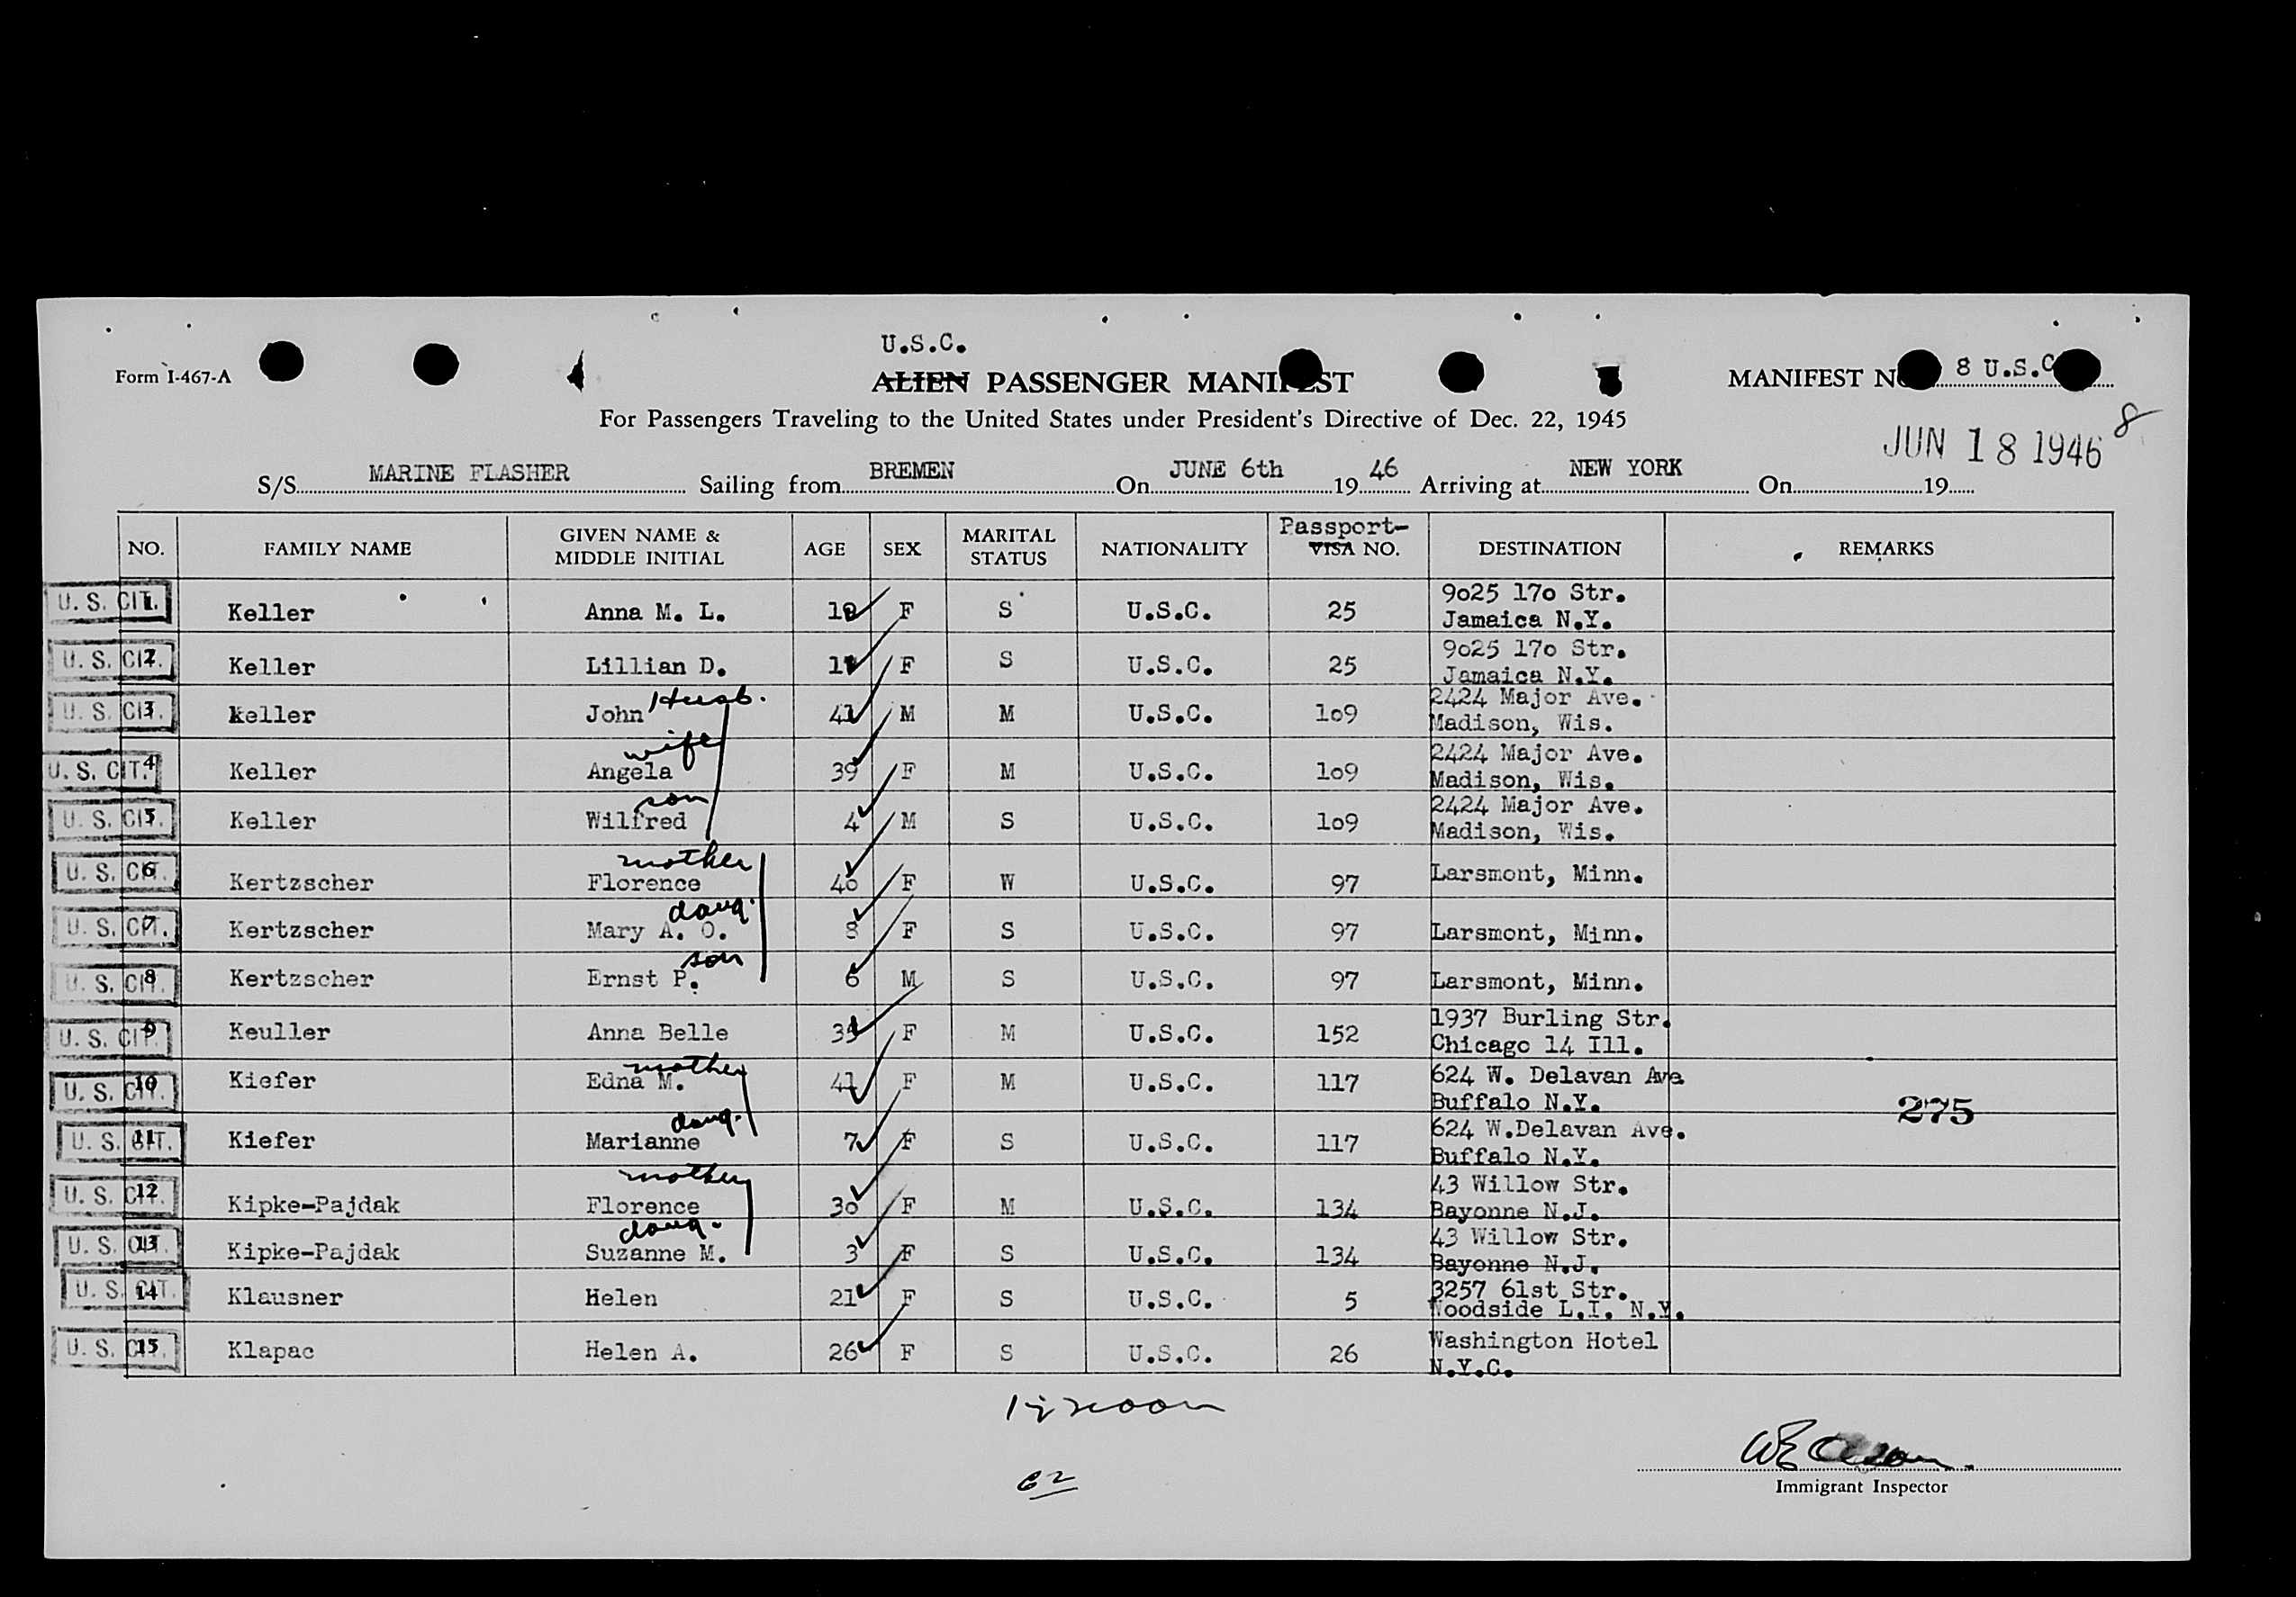 U.S.C.
Form I-467-A
ALIEN PASSENGER MANIFEST
MANIFEST NO. 8 U.S.C.
For Passengers Traveling to the United States under President's Directive of Dec. 22, 1945
8
JUN 18 1946
S/S MARINE FLASHER Sailing from BREMEN On JUNE 6th 19 46 Arriving at NEW YORK On 19
NO. FAMILY NAME GIVEN NAME & MIDDLE INITIAL AGE SEX MARITAL STATUS NATIONALITY Passport- VISA NO. DESTINATION REMARKS
U. S. CIT. 1. Keller Anna M. L. F S U.S.C. 25 9025 170 Str. Jamaica N.Y.
U. S. CIT. 2. Keller Lillian D. F S U.S.C. 25 9025 170 Str. Jamaica N.Y.
U. S. CIT. 3. Keller John Husb. 41 M M U.S.C. 109 2424 Major Ave. Madison, Wis.
U. S. CIT. 4. Keller Angela wife 39 F M U.S.C. 109 2424 Major Ave. Madison, Wis.
U. S. CIT. 5. Keller Wilfred son 4 M S U.S.C. 109 2424 Major Ave. Madison, Wis.
U. S. CIT. 6. Kertzscher Florence mother 40 F W U.S.C. 97 Larsmont, Minn.
U. S. CIT. 7. Kertzscher Mary A. O. daug. 8 F S U.S.C. 97 Larsmont, Minn.
U. S. CIT. 8. Kertzscher Ernst P. son 6 M S U.S.C. 97 Larsmont, Minn.
U. S. CIT. 9. Keuller Anna Belle F M U.S.C. 152 1937 Burling Str. Chicago 14 Ill.
U. S. CIT. 10. Kiefer Edna M. mother 41 F M U.S.C. 117 624 W. Delavan Ave Buffalo N.Y.
275
U. S. CIT. 11. Kiefer Marianne daug. 7 F S U.S.C. 117 624 W.Delavan Ave. Buffalo N.Y.
U. S. CIT. 12. Kipke-Pajdak Florence mother 30 F M U.S.C. 134 43 Willow Str. Bayonne N.J.
U. S. CIT. 13. Kipke-Pajdak Suzanne M. daug. 3 F S U.S.C. 134 43 Willow Str. Bayonne N.J.
U. S. CIT. 14. Klausner Helen 21 F S U.S.C. 5 3257 61st Str. Woodside L.I. N.Y.
U. S. CIT. 15. Klapac Helen A. 26 F S U.S.C. 26 Washington Hotel N.Y.C.
noon
62
Immigrant Inspector